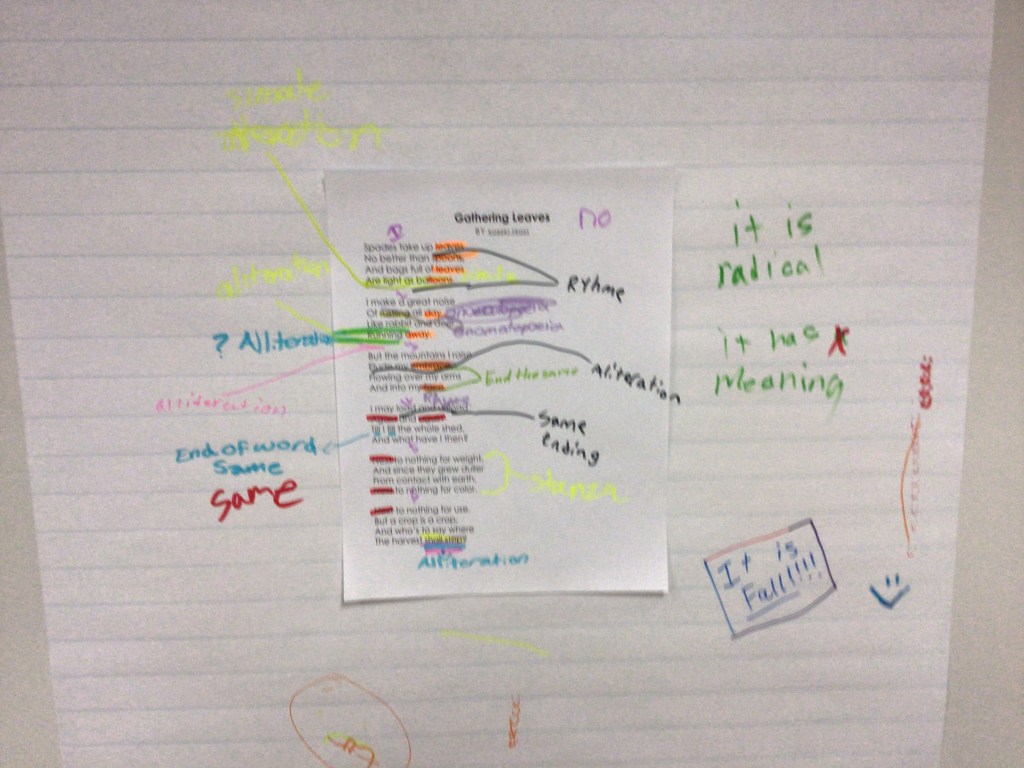 Gathering Leaves
no
BY ROBERT FROST
Spades take up leaves
No better than spoons,
And bags full of leaves
Are light as balloons.
simile
I make a great noise
Of rustling all day
Like rabbit and deer
Running away.
onomatopoeia
onomatopoeia
RYhme
aliteration
? Alliteration
alliteration
But the mountains I raise
Elude my embrace,
Flowing over my arms
And into my face.
End the same
Aliteration
I may load and unload
Again and again
Till I fill the whole shed,
And what have I then?
Same
Ending
End of word
Same
Same
Next to nothing for weight,
And since they grew duller
From contact with earth,
Next to nothing for color.
Stanza
Next to nothing for use.
But a crop is a crop,
And who's to say where
The harvest shall stop?
Alliteration
it is
radical
it has
Meaning
It is
Fall!!!!!